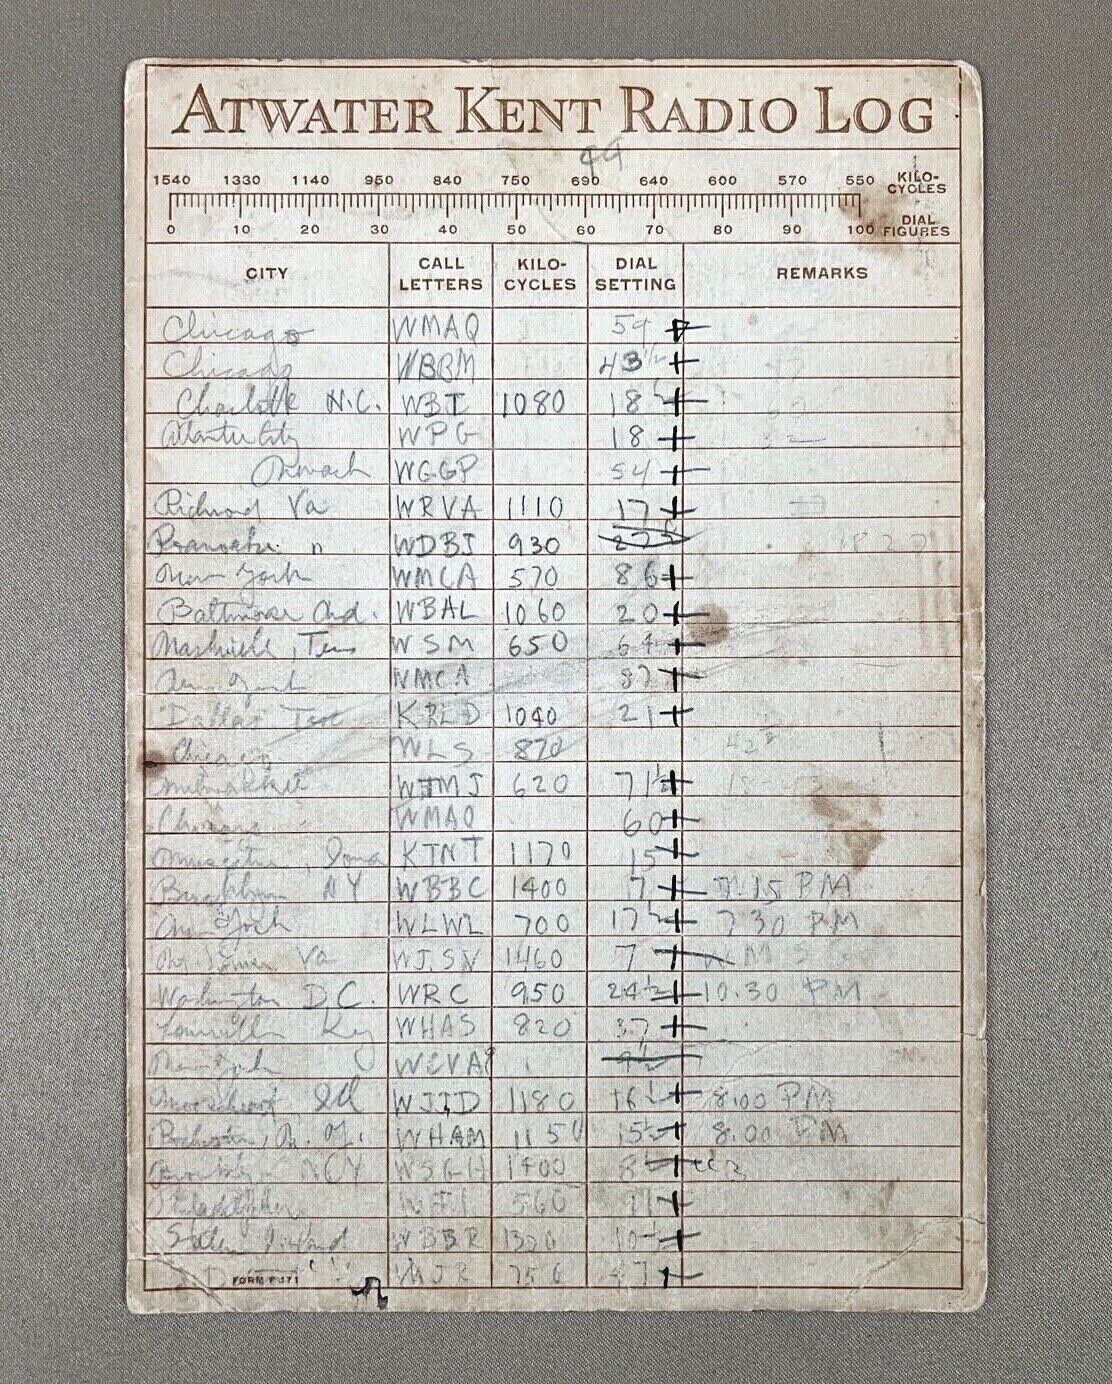 ATWATER KENT RADIO LOG
49
1540 1330 1140 950 840 750 690 640 600 570 550 KILO-CYCLES
0 10 20 30 40 50 60 70 80 90 100 DIAL FIGURES
CITY CALL LETTERS KILO-CYCLES DIAL SETTING REMARKS
Chicago WMAQ 59
Chicago WBBM 43 1/2
Charlotte N.C. WBT 1080 18 1/2
Atlantic City WPG 18
Newark WGGP 54
Richmond Va WRVA 1110 17
Roanoke " WDBJ 930
New York WMCA 570 86
Baltimore Md. WBAL 1060 20
Nashville, Ten WSM 650 64
New York WMCA 87
Dallas Tex KRLD 1040 21
Chicago WLS 870 42 1/2
Milwaukee WTMJ 620 71 1/2
Chicago WMAQ 60
Muscatine, Iowa KTNT 1170 15
NY WBBC 1400 7 7:15 PM
New York WLWL 700 17 1/2 7 30 PM
Va WJSN 1460 7
Washington D.C. WRC 950 24 1/2 10.30 PM
Louisville Ky WHAS 820 37
New York
Mooseheart, Ill WJJD 1180 16 1/2 8:00 PM
Rochester, N.Y. WHAM 1150 15 1/2 8.00 PM
Brooklyn NCY WSGH 1400 8
Philadelphia WFI 560 91
Staten Island WBBR 10 1/2
WJR 47
FORM F 171